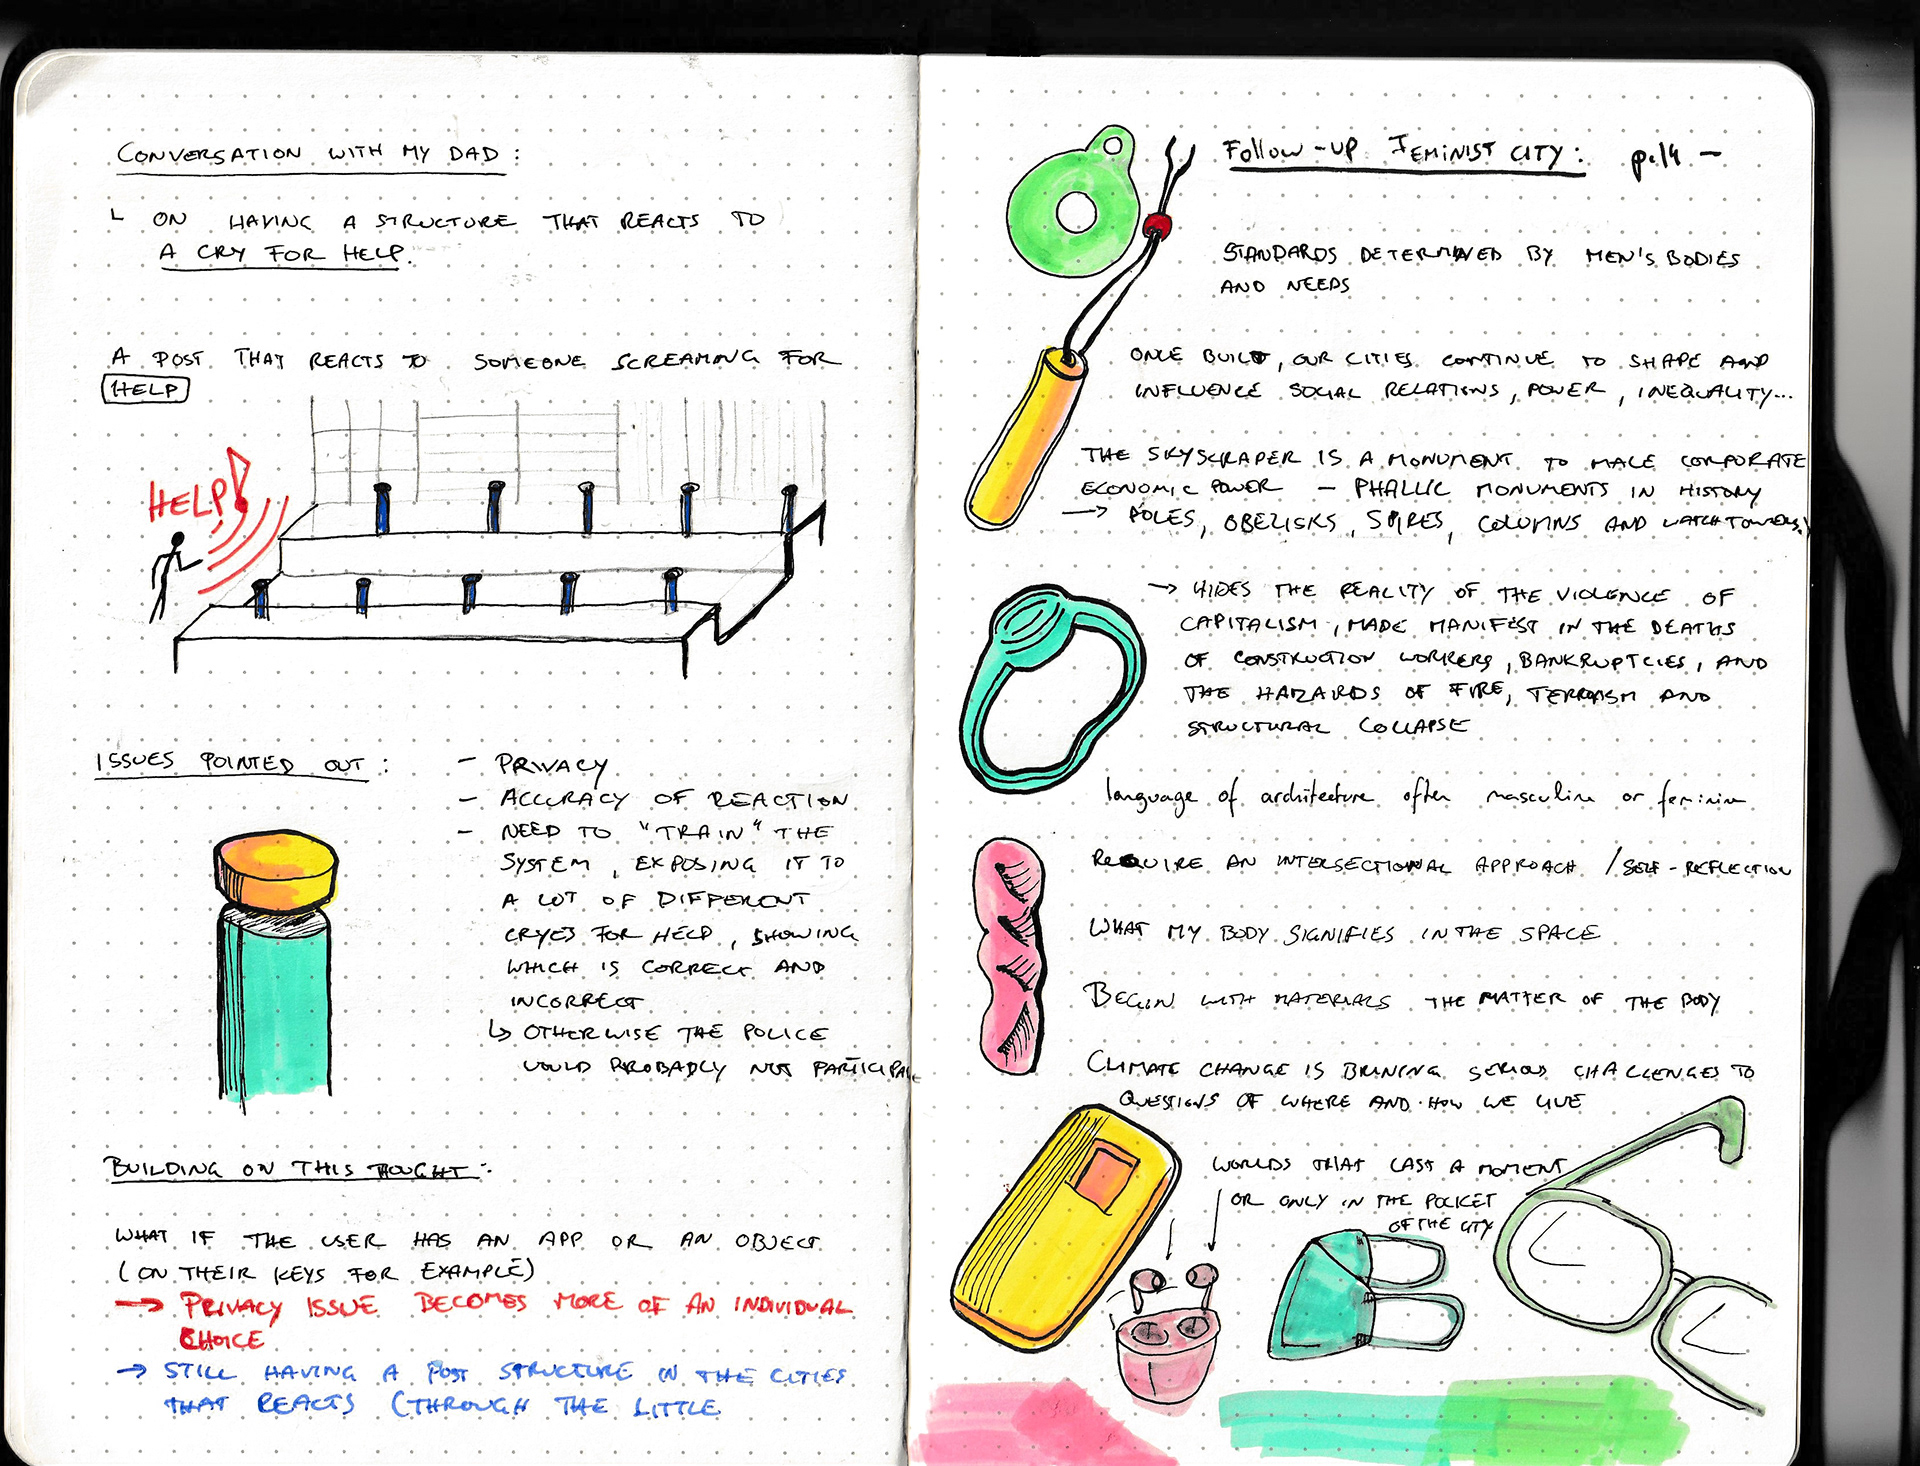 CONVERSATION WITH MY DAD :
ON HAVING A STRUCTURE THAT REACTS TO
A CRY FOR HELP.
A POST THAT REACTS TO SOMEONE SCREAMING FOR
HELP
HELP!
ISSUES POINTED OUT :
- PRIVACY
- ACCURACY OF REACTION
- NEED TO "TRAIN" THE
SYSTEM, EXPOSING IT TO
A LOT OF DIFFERENT
CRYES FOR HELP, SHOWING
WHICH IS CORRECT AND
INCORRECT
↳ OTHERWISE THE POLICE
WOULD PROBABLY NOT PARTICIPATE
BUILDING ON THIS THOUGHT :
WHAT IF THE USER HAS AN APP OR AN OBJECT
(ON THEIR KEYS FOR EXAMPLE)
→ PRIVACY ISSUE BECOMES MORE OF AN INDIVIDUAL
CHOICE
→ STILL HAVING A POST STRUCTURE IN THE CITIES
THAT REACTS (THROUGH THE LITTLE
FOLLOW-UP FEMINIST CITY : p.14 -
STANDARDS DETERMINED BY MEN'S BODIES
AND NEEDS
ONCE BUILT, OUR CITIES CONTINUE TO SHAPE AND
INFLUENCE SOCIAL RELATIONS, POWER, INEQUALITY...
THE SKYSCRAPER IS A MONUMENT TO MALE CORPORATE
ECONOMIC POWER - PHALLIC MONUMENTS IN HISTORY
→ POLES, OBELISKS, SPIRES, COLUMNS AND WATCHTOWERS)
→ HIDES THE REALITY OF THE VIOLENCE OF
CAPITALISM, MADE MANIFEST IN THE DEATHS
OF CONSTRUCTION WORKERS, BANKRUPTCIES, AND
THE HAZARDS OF FIRE, TERRORISM AND
STRUCTURAL COLLAPSE
language of architecture often masculine or feminine
REQUIRE AN INTERSECTIONAL APPROACH / SELF-REFLECTION
WHAT MY BODY SIGNIFIES IN THE SPACE
BEGIN WITH MATERIALS THE MATTER OF THE BODY
CLIMATE CHANGE IS BRINING SERIOUS CHALLENGES TO
QUESTIONS OF WHERE AND HOW WE LIVE
WORLDS THAT LAST A MOMENT
OR ONLY IN THE POCKET
OF THE CITY